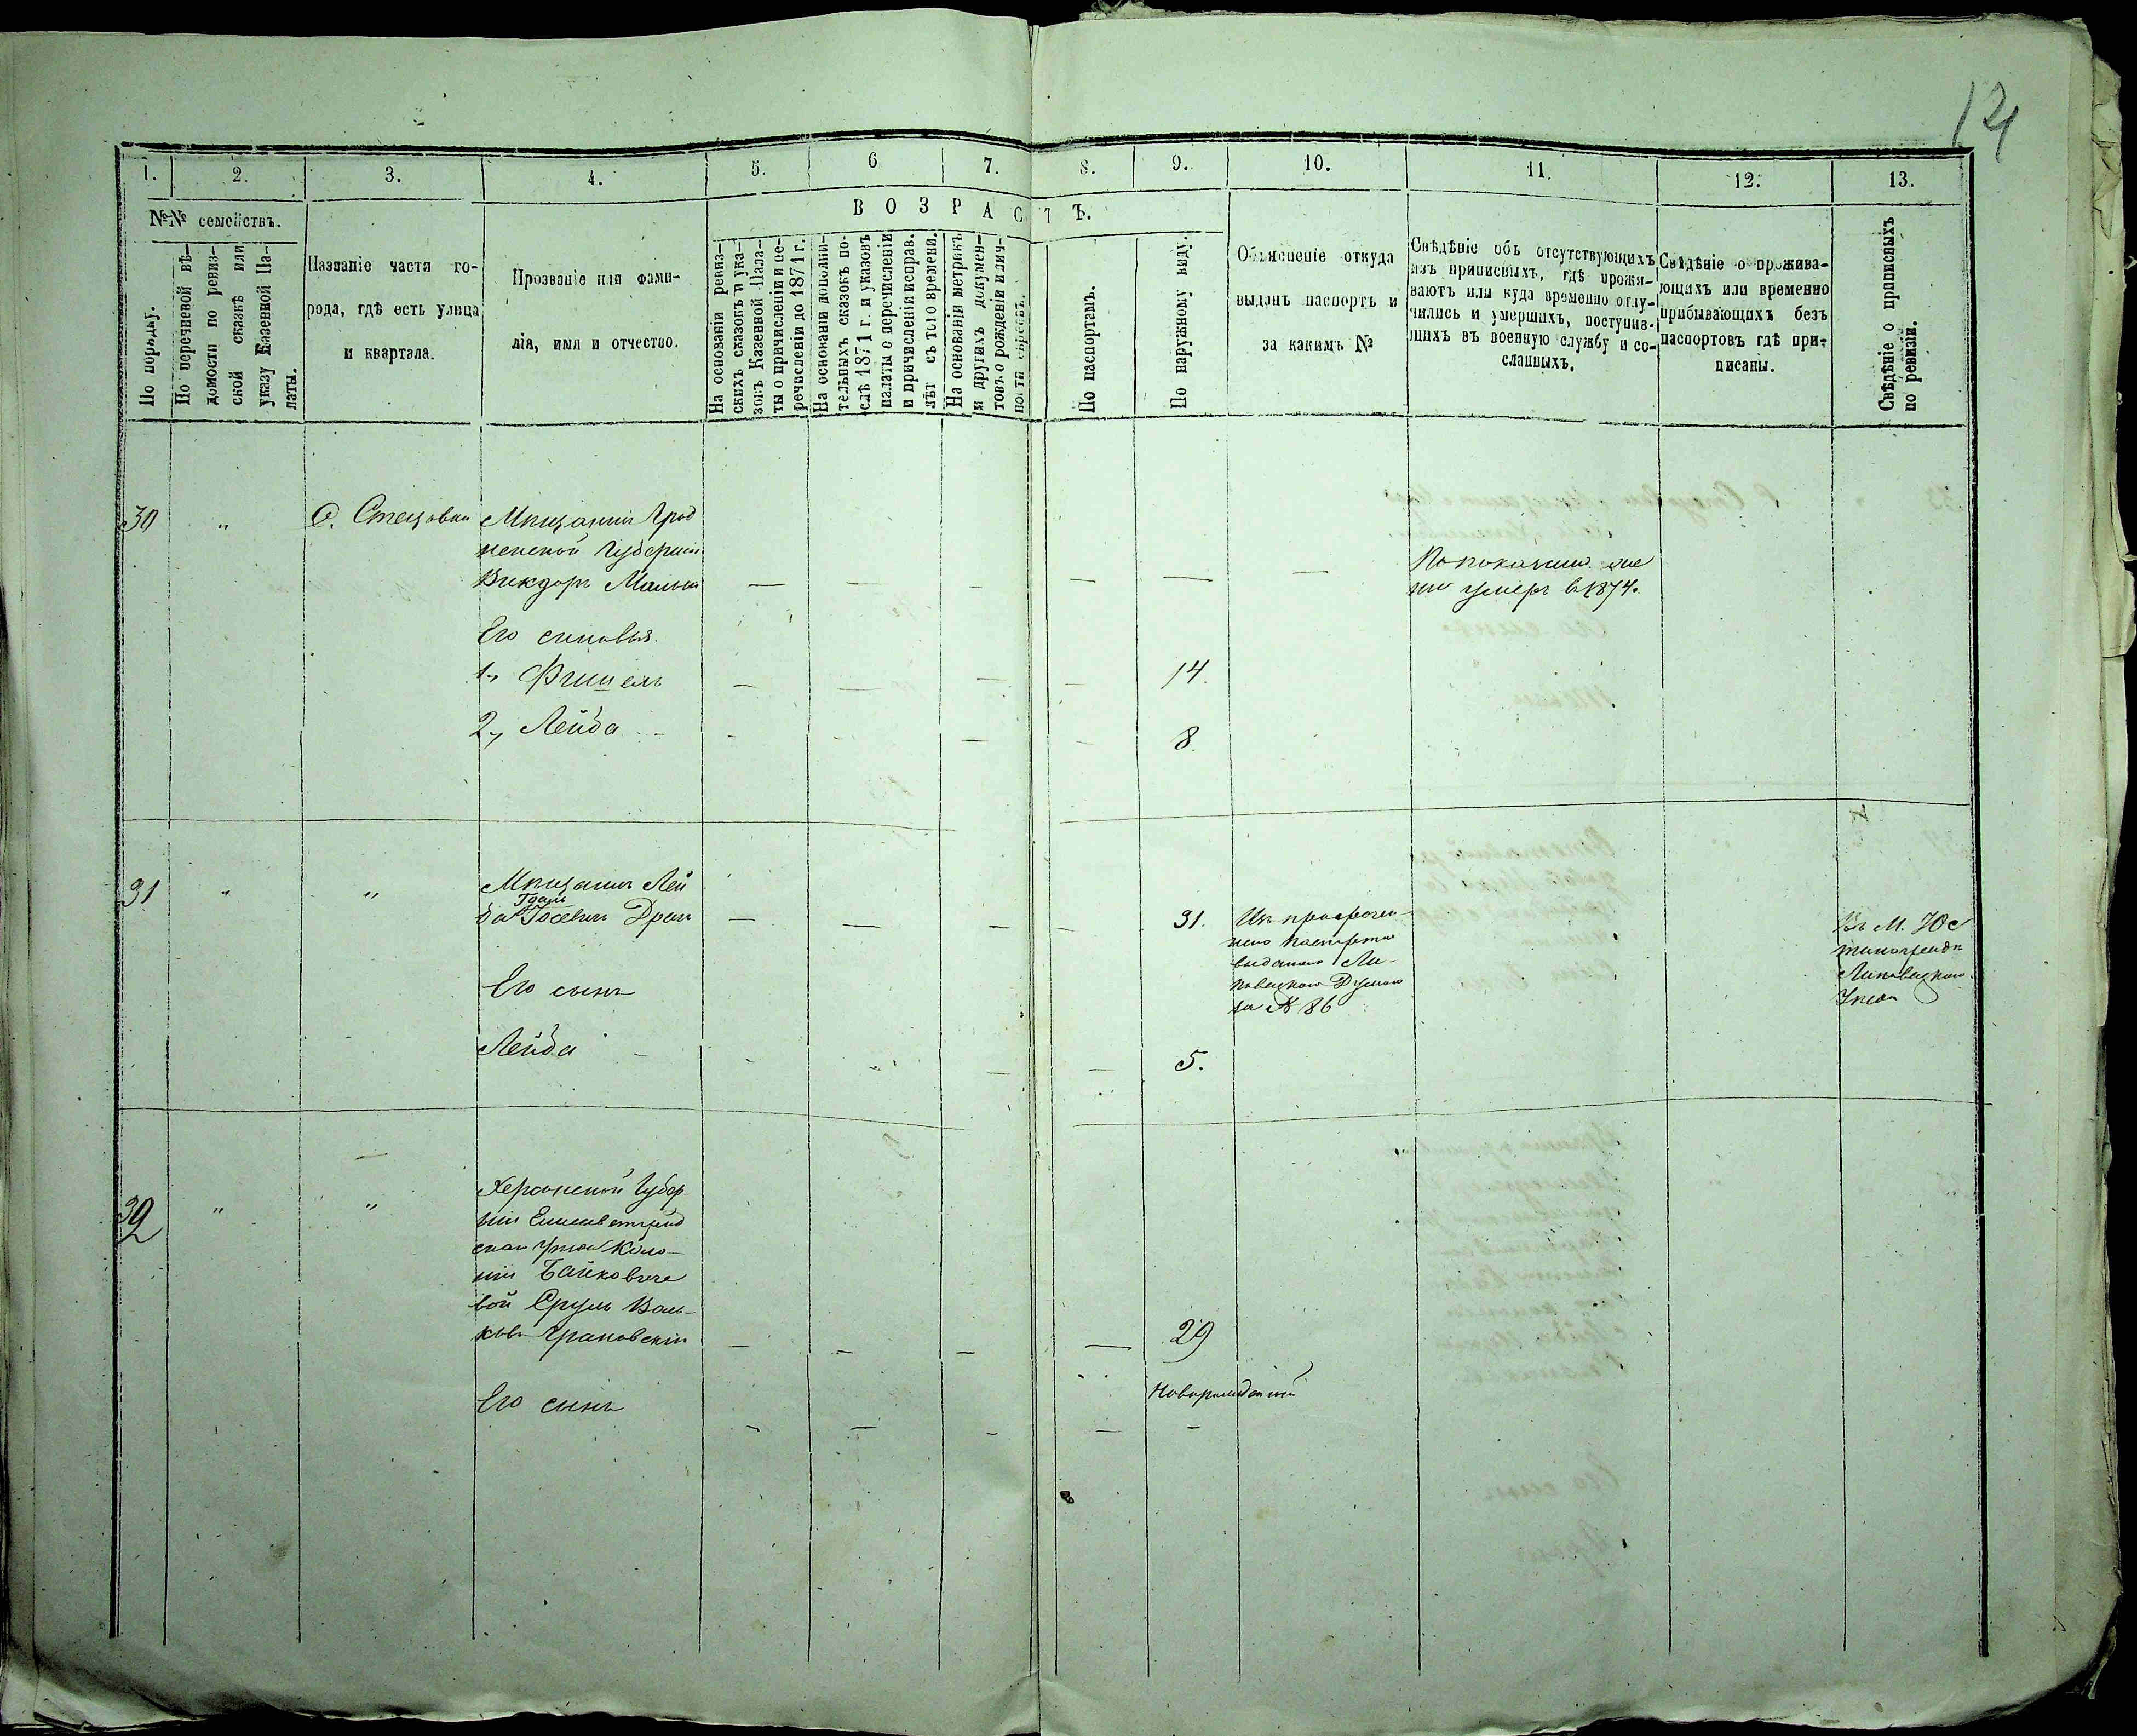 124
1. 2. 3. 4. 5. 6 7. 8. 9. 10. 11. 12. 13.
В О З Р А С Т Ъ.
№№ семействъ.
По порядку.
По перечневой вѣ-
домости по ревиз-
ской сказкѣ или
указу Казенной Па-
латы.
Названіе части го-
рода, гдѣ есть улица
и квартала.
Прозваніе или фами-
лія, имя и отчество.
На основаніи ревиз-
скихъ сказокъ и ука-
зовъ Казенной Пала-
ты о причисленіи и пе-
речисленіи до 1871 г.
На основаніи дополни-
тельныхъ сказокъ по-
слѣ 1871 г. и указовъ
палаты о перечисленіи
и причисленіи исправ.
лѣт съ того времени.
На основаніи метрикъ
и другихъ докумен-
товъ о рожденіи и лич-
По паспортамъ.
По наружному виду.
Объясненіе откуда
выданъ паспортъ и
за какимъ №
Свѣдѣніе объ отсутствующихъ
изъ приписныхъ, гдѣ прожи-
ваютъ или куда временно отлу-
чились и умершихъ, поступив-
шихъ въ военную службу и со-
сланныхъ.
Свѣдѣніе о прожива-
ющихъ или временно
прибывающихъ безъ
паспортовъ гдѣ при-
писаны.
Свѣдѣніе о приписныхъ
по ревизіи.
30 " С. Стецовка Мѣщанинъ Грод
ненской Губерніи
Его сыновья
1., Фишель 14.
2., Лейба 8.
умеръ в 1874.
31 " " Мѣщанинъ Лей
ба Іосевъ 31.
Его сынъ
Лейба 5.
паспорта
за № 86
Въ М.
Липовецкого
32 " " Херсонской Губер
ніи Елисаветград
скаго Коло-
ніи
вой Сруль
Грановскій 29
Его сынъ Новорожденный